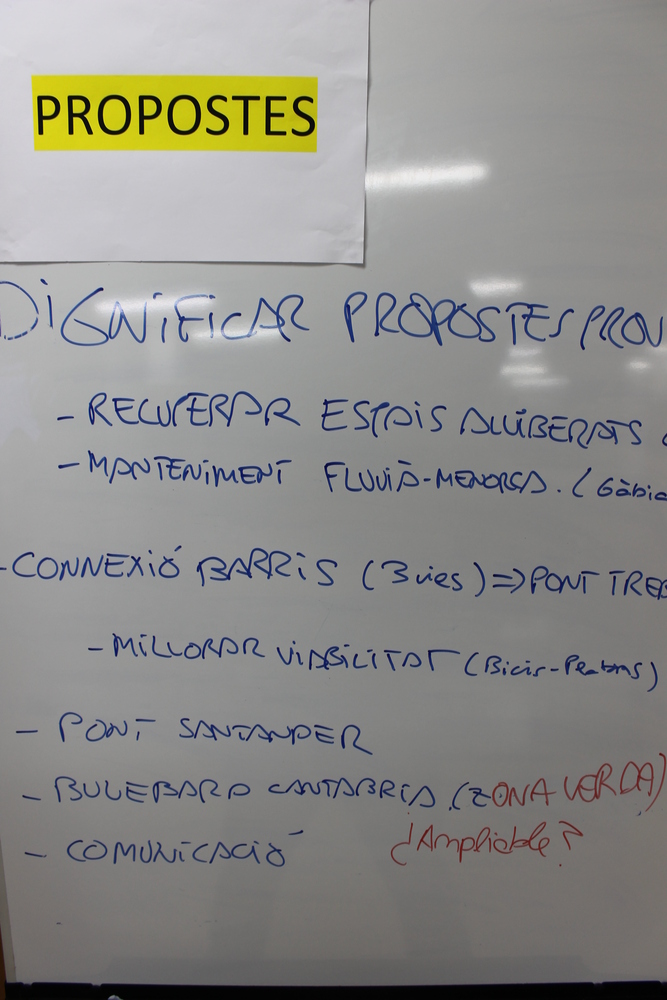 PROPOSTES
DIGNIFICAR PROPOSTES PROV
- RECUPERAR ESPAIS ALLIBERATS
- MANTENIMENT FLUVIÀ-MENORCA. (Gàbia
- CONNEXIÓ BARRIS (3 vies) => PONT TREB
- MILLORAR VIABILITAT (Bicis-Peatons)
- PONT SANTANDER
- BULEBARD CANTABRIA. (ZONA VERDA)
¿Ampliable?
- COMUNICACIÓ